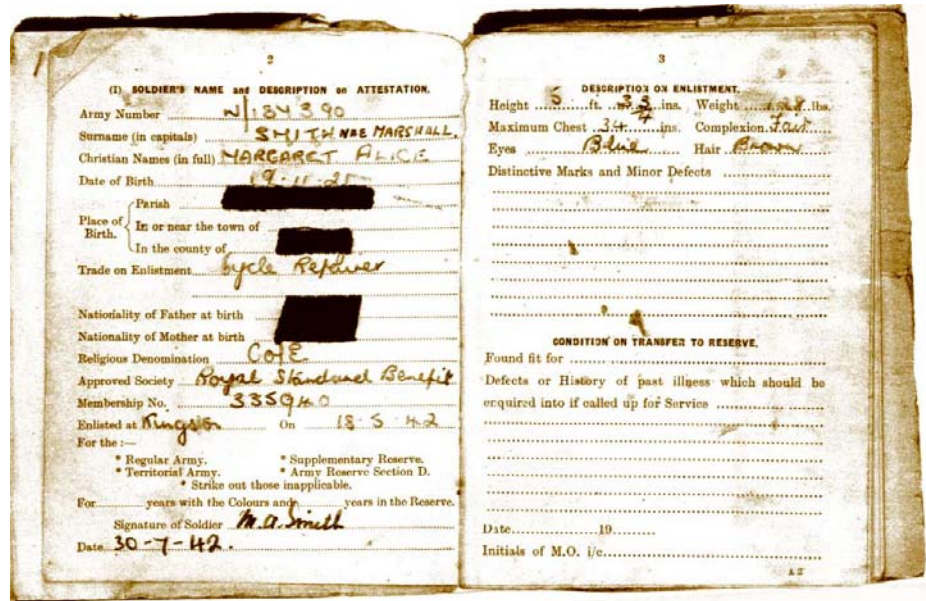 2
(I) SOLDIER'S NAME and DESCRIPTION on ATTESTATION.
Army Number W/184390
Surname (in capitals) SMITH NEE MARSHALL.
Christian Names (in full) MARGARET ALICE
Date of Birth 19.11.25
Place of Birth.
Parish
In or near the town of
In the county of
Trade on Enlistment Cycle Repairer
Nationality of Father at birth
Nationality of Mother at birth
Religious Denomination C of E
Approved Society Royal Standard Benefit
Membership No. 335940
Enlisted at Kingston On 18.5.42
For the :—
* Regular Army. * Supplementary Reserve.
* Territorial Army. * Army Reserve Section D.
* Strike out those inapplicable.
For years with the Colours and years in the Reserve.
Signature of Soldier M.A. Smith
Date 30-7-42.
3
DESCRIPTION ON ENLISTMENT.
Height 5 ft. 3 3/4 ins. Weight lbs.
Maximum Chest 34 ins. Complexion Fair
Eyes Blue Hair Brown
Distinctive Marks and Minor Defects
CONDITION ON TRANSFER TO RESERVE.
Found fit for
Defects or History of past illness which should be
enquired into if called up for Service
Date 19
Initials of M.O. i/c